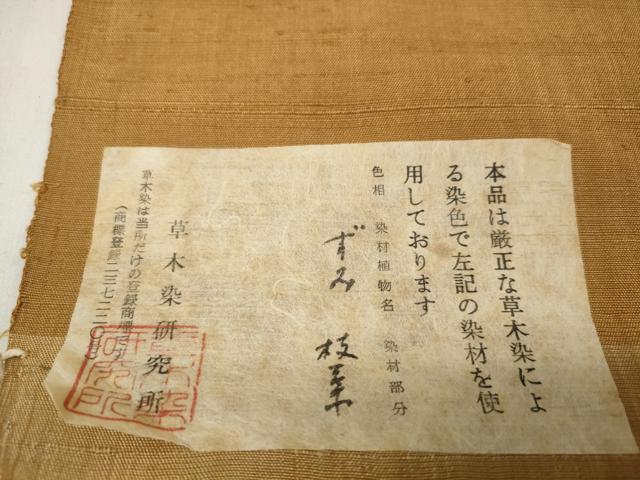 本品は厳正な草木染によ
る染色で左記の染材を使
用しております
色相 染材植物名 染材部分
ずみ 枝葉
草木染研究所
草木染は当所だけの登録商標です
(商標登録二三七二二〇号)
草木染
研究所